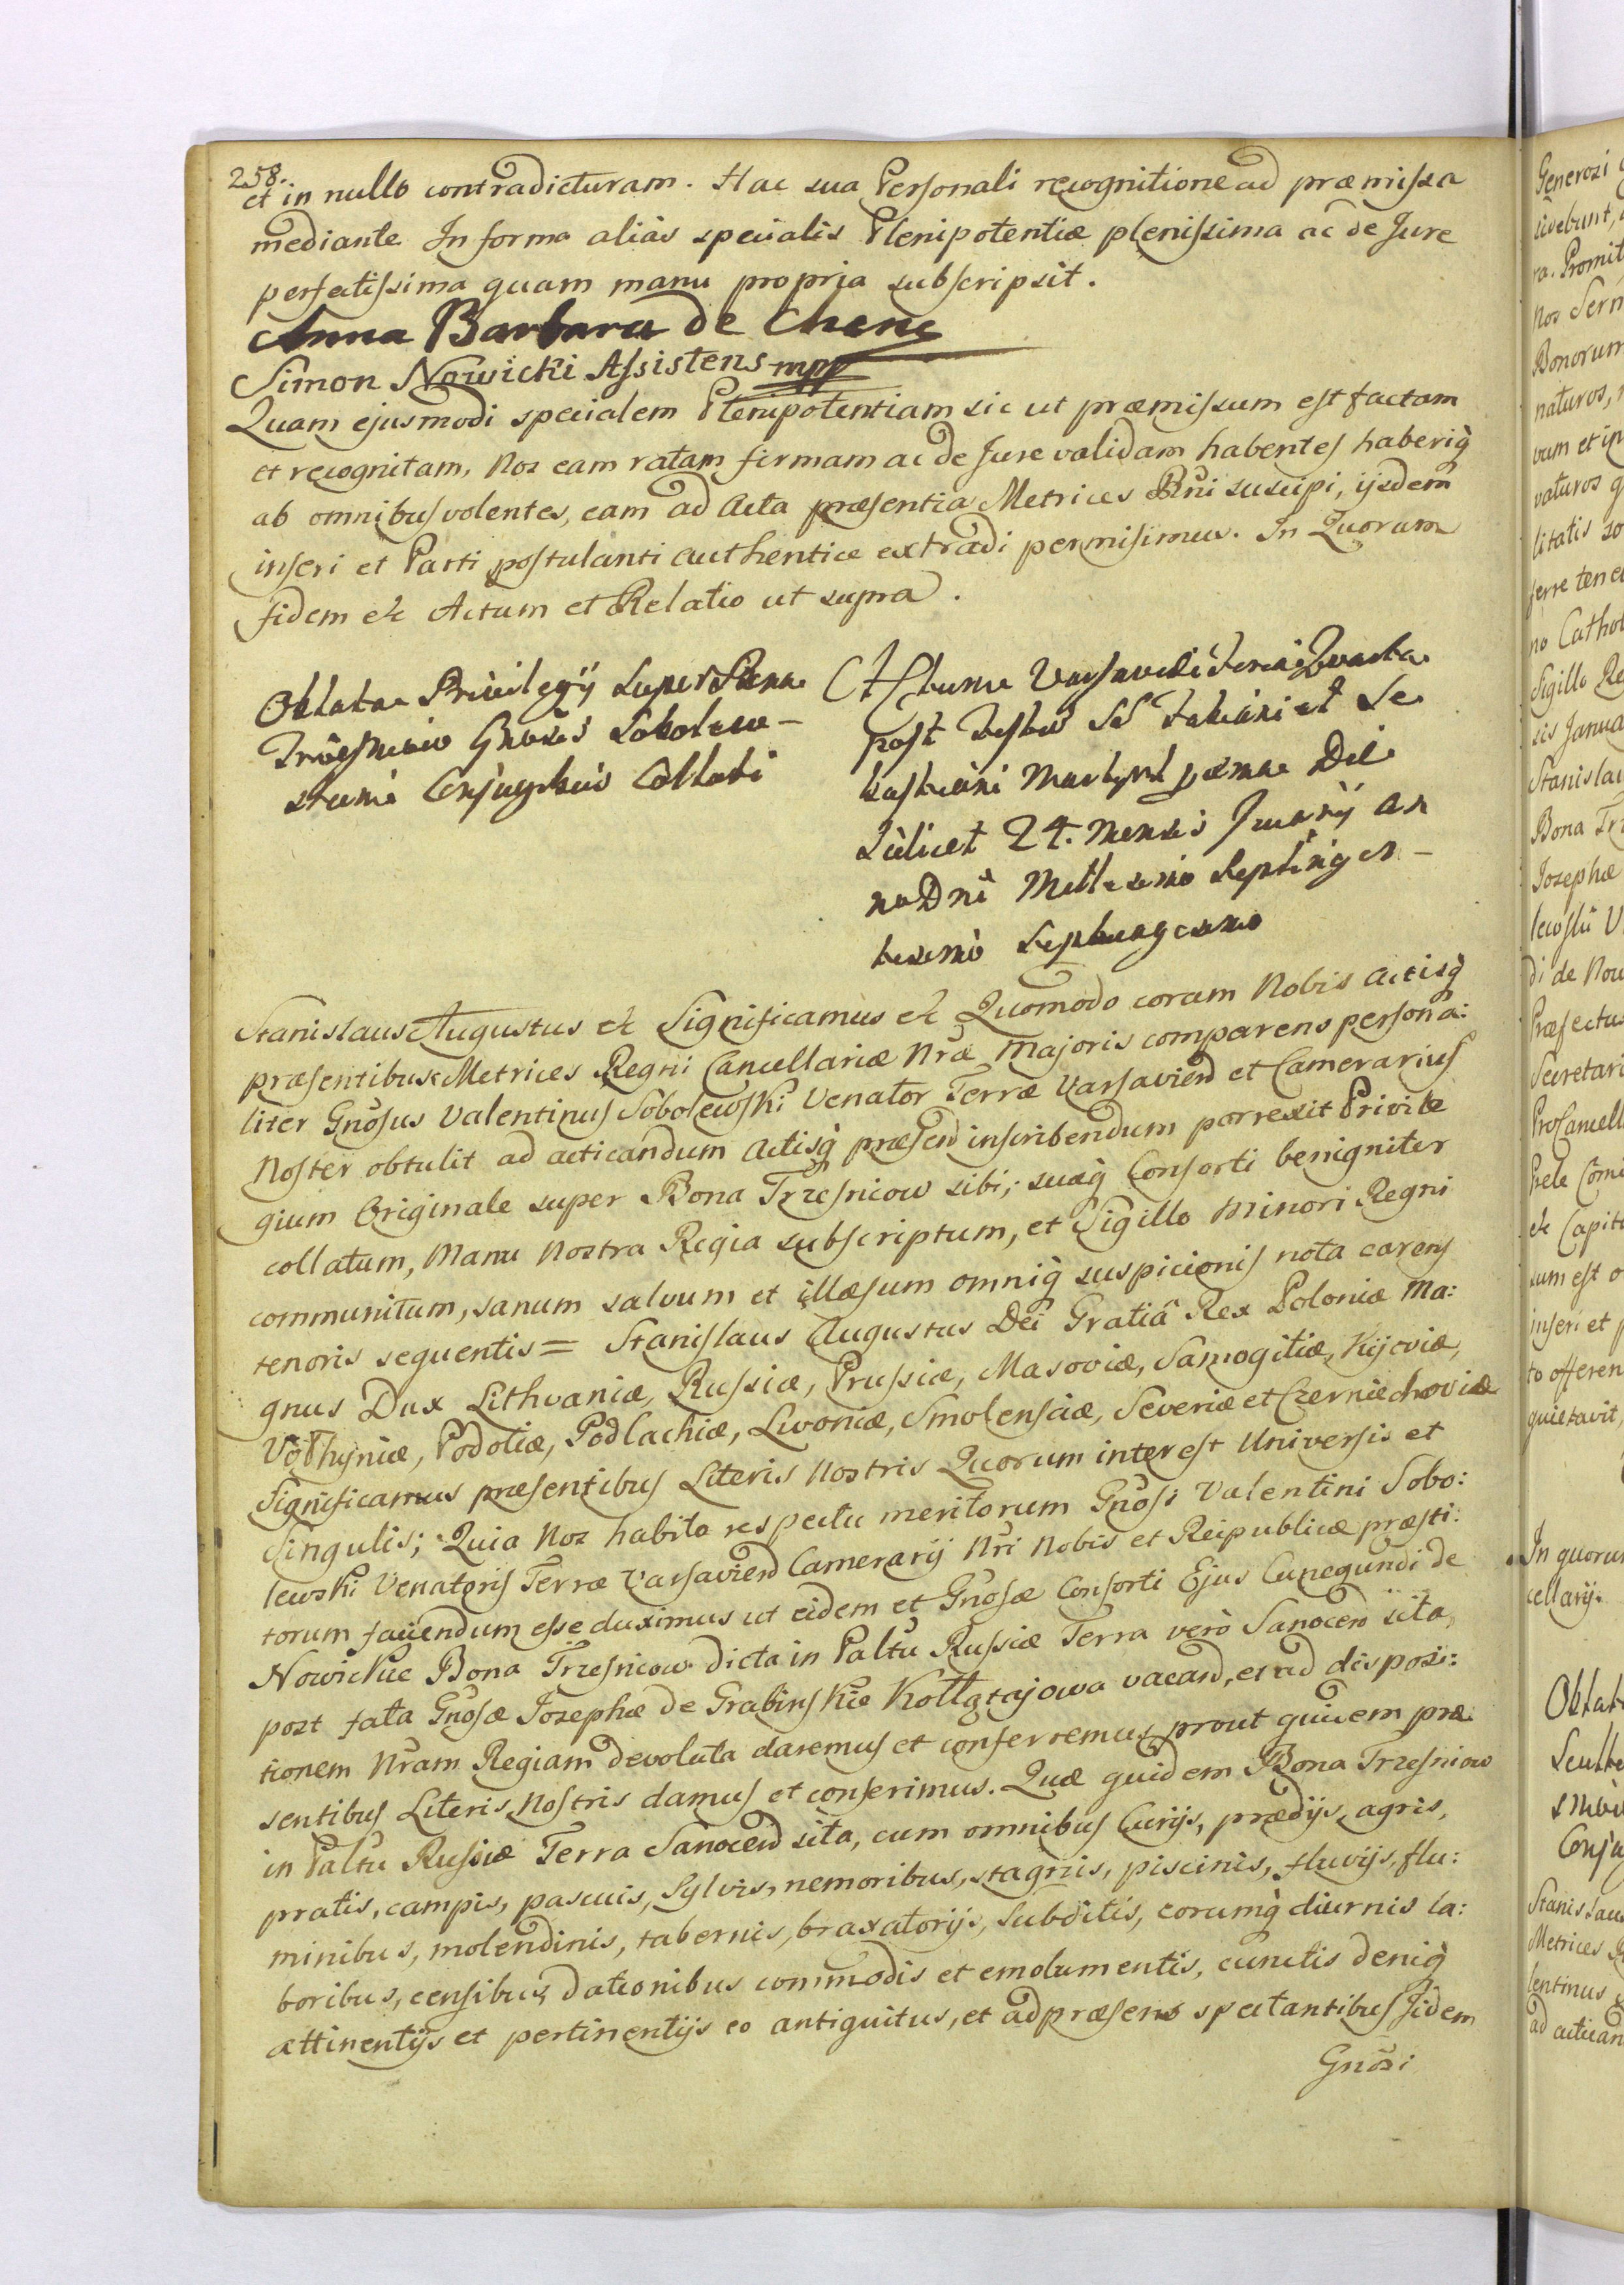 258.
et in nullo contradicturam. Hac sua Personali recognitione ad præmissa
mediante In forma alias specialis Plenipotentiæ plenissima ac de Jure
perfectissima quam manu propria subscripsit.
Anna Barbara de Chene
Simon Nowicki Assistens mpp
Quam ejusmodi specialem Plenipotentiam sic ut præmissum est factam
et recognitam, Nos eam ratam firmam ac de Jure validam habentes haberiq̀
ab omnibus volentes, eam ad Acta præsentia Metrices Rñi suscipi, ijsdem
inseri et Parti postulanti authentice extradi permisimus. In Quorum
fidem etc Actum et Relatio ut supra.
Oblata Privilegÿ super Bona
Trzesniow Gnosis Sobolew-
sciani Conjugibus Collati
Actum Varsaviæ Feria Quarta
post Festum SS Fabiani et Se
bastiani Martyrum prima Die
Scilicet 24. Mensis Januarÿ An
no Dni Millesimo Septingen-
tesimo Septuagesimo
Stanislaus Augustus etc Significamus etc Quomodo coram Nobis Actisq̀
præsentibus Metrices Regni Cancellariæ Nræ Majoris comparens persona:
liter Gnosus Valentinus Sobolewski Venator Terræ Varsavien et Camerarius
Noster obtulit ad acticandum Actisq̀ præsen inscribendum porrexit Privile
gium Originale super Bona Trzesniow sibi, suæq̀ Consorti benigniter
collatum, Manu Nostra Regia subscriptum, et Sigillo Minori Regni
communitum, sanum salvum et illæsum omniq̀ suspicionis nota carens
tenoris sequentis = Stanislaus Augustus Dei Gratiâ Rex Poloniæ Ma:
gnus Dux Lithvaniæ, Russiæ, Prussiæ, Masoviæ, Samogitiæ, Kijoviæ,
Volhyniæ, Podoliæ, Podlachiæ, Livoniæ, Smolensciæ, Severiæ et Czerniechoviæ
Significamus præsentibus Literis Nostris Quorum interest Universis et
Singulis; Quia Nos habito respectu meritorum Gnosi Valentini Sobo:
lewski Venatoris Terræ Varsavien Camerarÿ Nri Nobis et Reipublicæ præsti:
torum faciendum esse duximus ut eidem et Gnosæ Consorti Ejus Cunegundi de
Nowickie Bona Trzesniow dicta in Paltu Russiæ Terra verò Sanocen sita,
post fata Gnosæ Josephæ de Grabinskie Kołłątajowa vacan, et ad disposi:
tionem Nram Regiam devoluta daremus et conferremus, prout quidem præ
sentibus Literis Nostris damus et conferimus. Quæ quidem Bona Trzesniow
in Paltu Russiæ Terra Sanocen sita, cum omnibus Curijs, prædijs, agris,
pratis, campis, pascuis, Sylvis, nemoribus, stagnis, piscinis, fluvijs, flu:
minibus, molendinis, tabernis, braxatorijs, Subditis, eorumq̀ diurnis la:
boribus, censibus, dationibus commodis et emolumentis, cunctis deniq̀
attinentijs et pertinentijs eo antiquitus, et ad præsens spectantibus Iidem
Gnosi